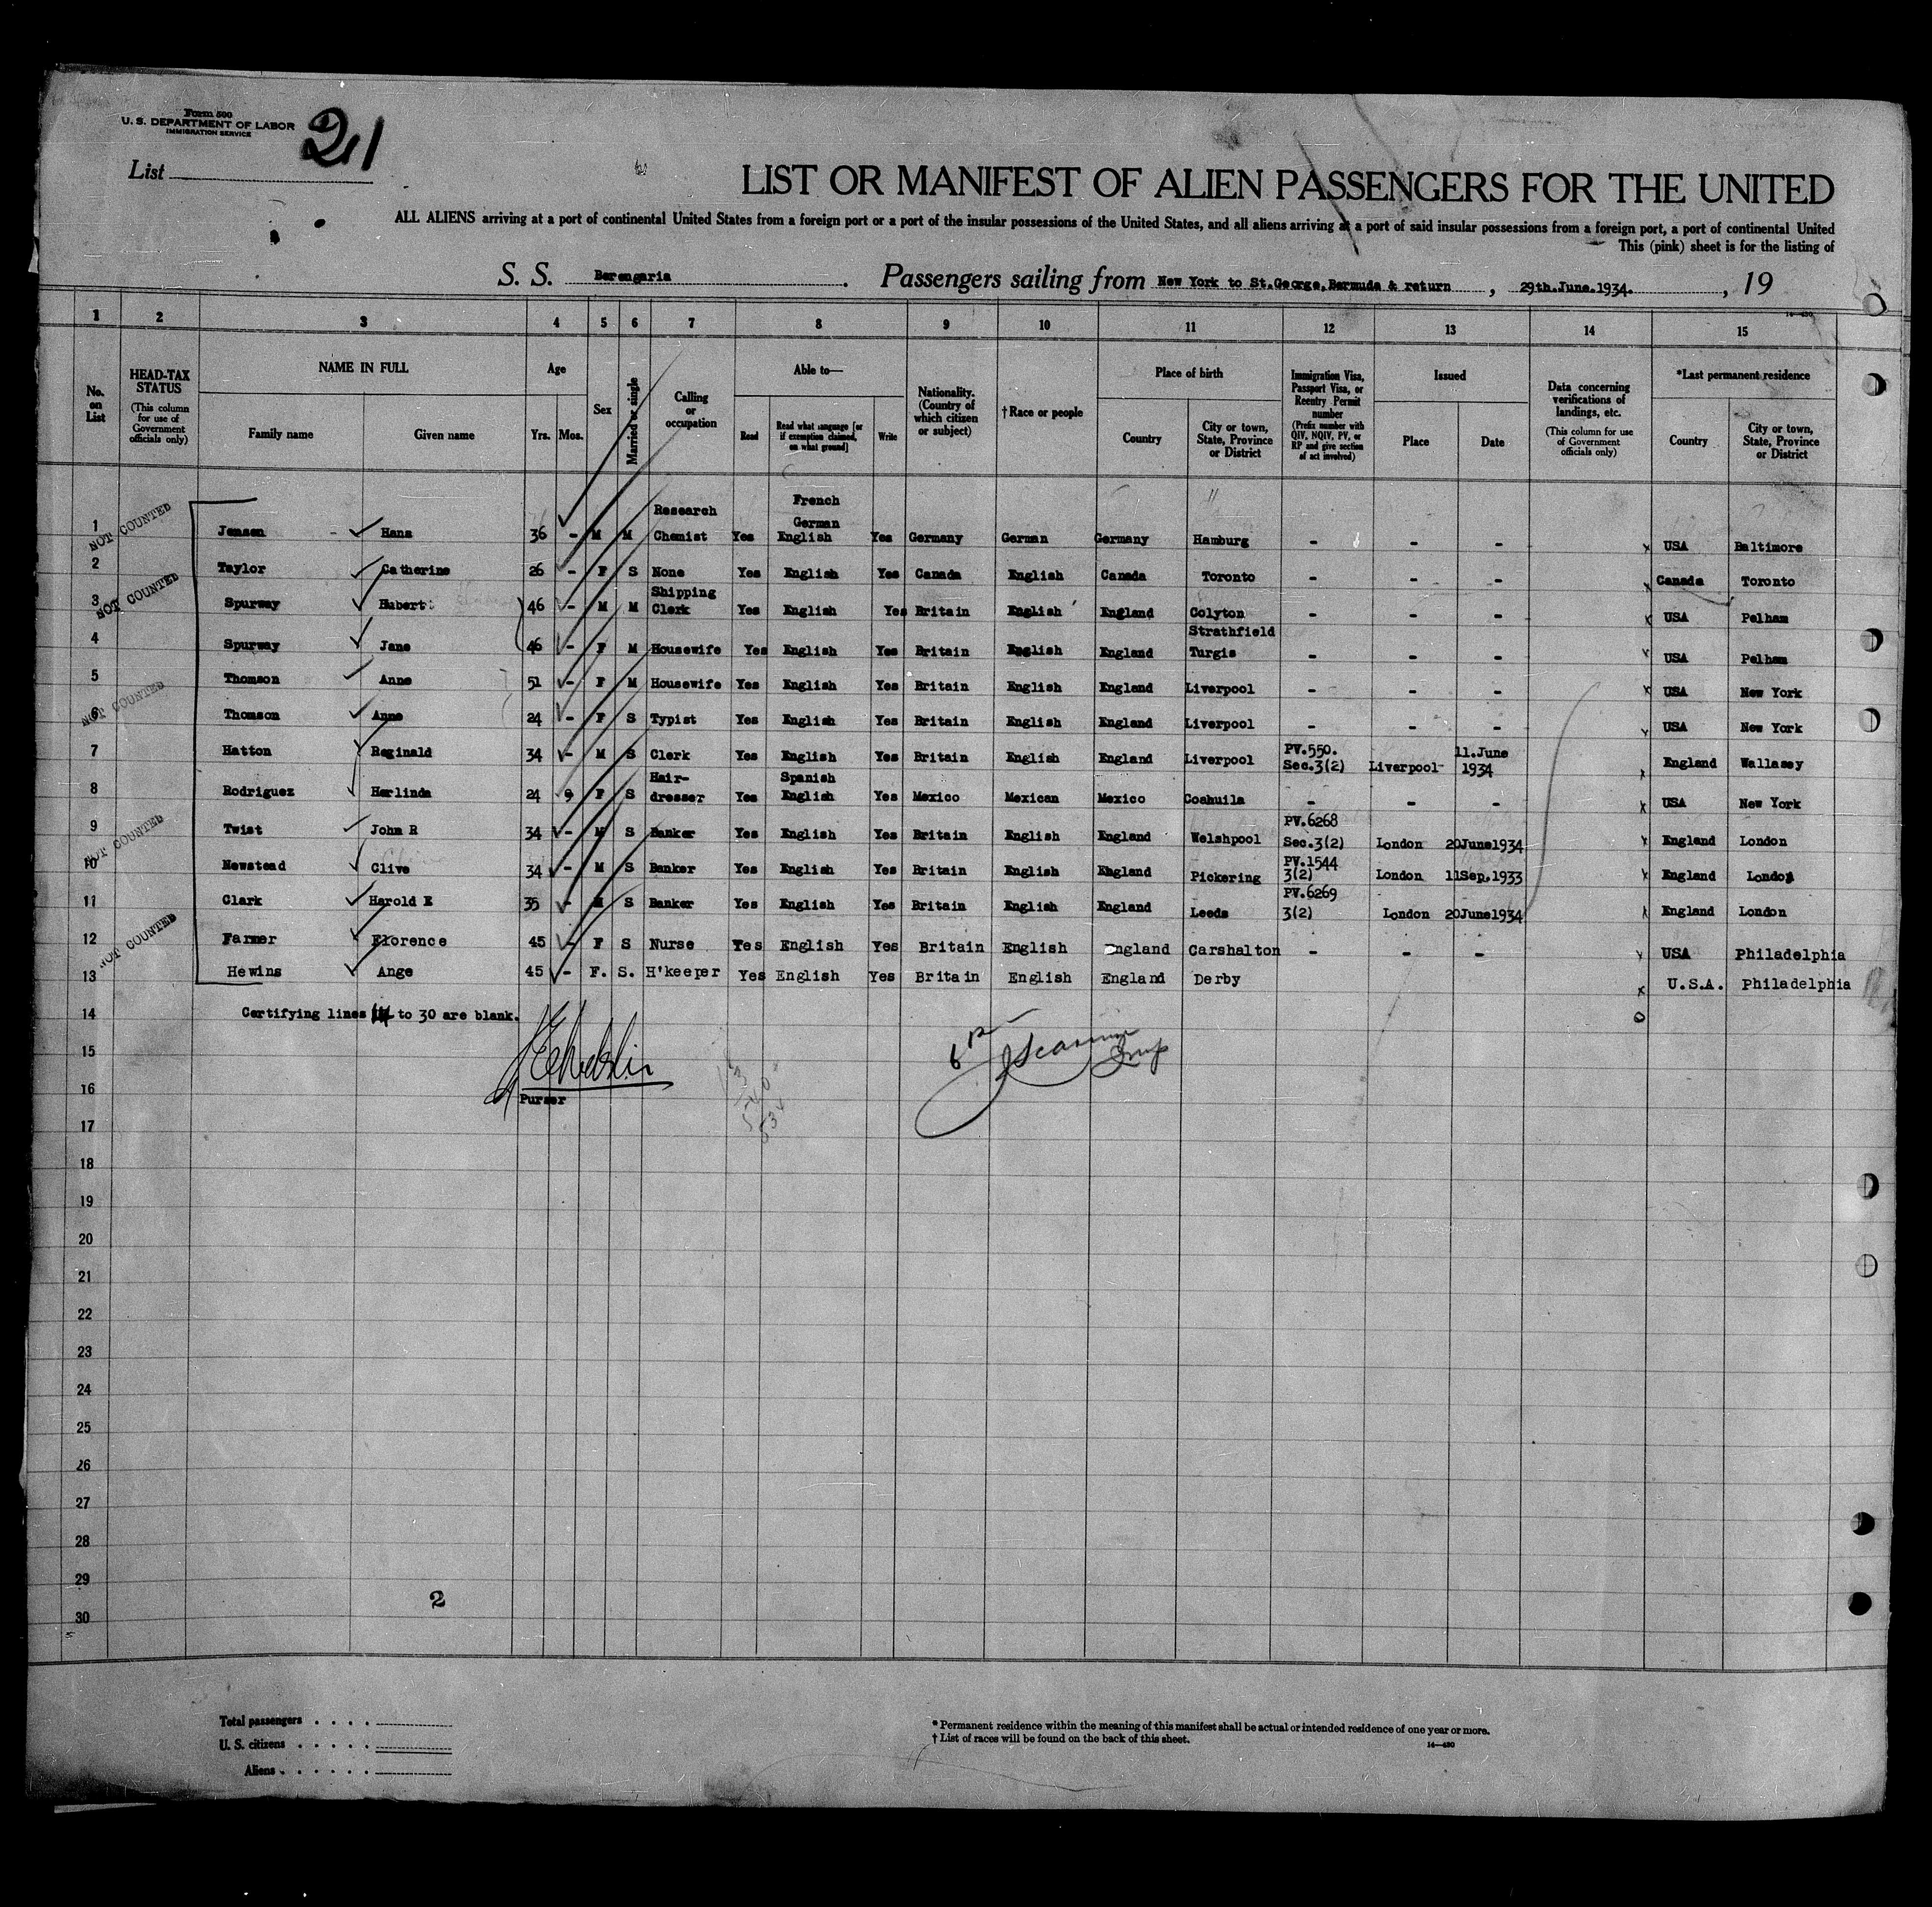 Form 500
U. S. DEPARTMENT OF LABOR
IMMIGRATION SERVICE
21
List
LIST OR MANIFEST OF ALIEN PASSENGERS FOR THE UNITED
ALL ALIENS arriving at a port of continental United States from a foreign port or a port of the insular possessions of the United States, and all aliens arriving at a port of said insular possessions from a foreign port, a port of continental United
This (pink) sheet is for the listing of
S. S. Berengaria. Passengers sailing from New York to St.George,Bermuda & return, 29th.June.1934., 19
1 2 3 4 5 6 7 8 9 10 11 12 13 14 15
14—430
No. on List
HEAD-TAX STATUS
(This column for use of Government officials only)
NAME IN FULL
Family name Given name
Age
Yrs. Mos.
Sex
Married or single
Calling or occupation
Able to—
Read
Read what language [or if exemption claimed, on what ground]
Write
Nationality. (Country of which citizen or subject)
† Race or people
Place of birth
Country
City or town, State, Province or District
Immigration Visa, Passport Visa, or Reentry Permit number
(Prefix number with QIV, NQIV, PV, or RP and give section of act involved)
Issued
Place Date
Data concerning verifications of landings, etc.
(This column for use of Government officials only)
*Last permanent residence
Country
City or town, State, Province or District
NOT COUNTED
Research French
German
1 Jensen - Hans 36 - M M Chemist Yes English Yes Germany German Germany Hamburg - - - x USA Baltimore
2 Taylor Catherine 26 - F S None Yes English Yes Canada English Canada Toronto - - - x Canada Toronto
NOT COUNTED
Shipping
3 Spurway Hubert 46 - M M Clerk Yes English Yes Britain English England Colyton - - - x USA Pelham
Strathfield
4 Spurway Jane 46 - F M Housewife Yes English Yes Britain English England Turgis - - - x USA Pelham
5 Thomson Anne 51 - F M Housewife Yes English Yes Britain English England Liverpool - - - x USA New York
NOT COUNTED
6 Thomson Anne 24 - F S Typist Yes English Yes Britain English England Liverpool - - - x USA New York
PV.550. 11.June
7 Hatton Reginald 34 - M S Clerk Yes English Yes Britain English England Liverpool Sec.3(2) Liverpool 1934 x England Wallasey
Hair- Spanish
8 Rodriguez Herlinda 24 9 F S dresser Yes English Yes Mexico Mexican Mexico Coahuila - - - x USA New York
PV.6268
9 Twist John R 34 - M S Banker Yes English Yes Britain English England Welshpool Sec.3(2) London 20June1934 x England London
NOT COUNTED
PV.1544
10 Newstead Clive 34 - M S Banker Yes English Yes Britain English England Pickering 3(2) London 11Sep.1933 x England London
PV.6269
11 Clark Harold E 35 - M S Banker Yes English Yes Britain English England Leeds 3(2) London 20June1934 x England London
NOT COUNTED
12 Farmer Florence 45 - F S Nurse Yes English Yes Britain English England Carshalton - - - x USA Philadelphia
13 Hewins Ange 45 - F. S. H'keeper Yes English Yes Britain English England Derby x U.S.A. Philadelphia
14 Certifying lines 14 to 30 are blank.
15
16
Purser
17
18
19
20
21
22
23
24
25
26
27
28
29
2
30
Total passengers . . . .
U. S. citizens . . . . .
Aliens . . . . . .
* Permanent residence within the meaning of this manifest shall be actual or intended residence of one year or more.
† List of races will be found on the back of this sheet.
14—430